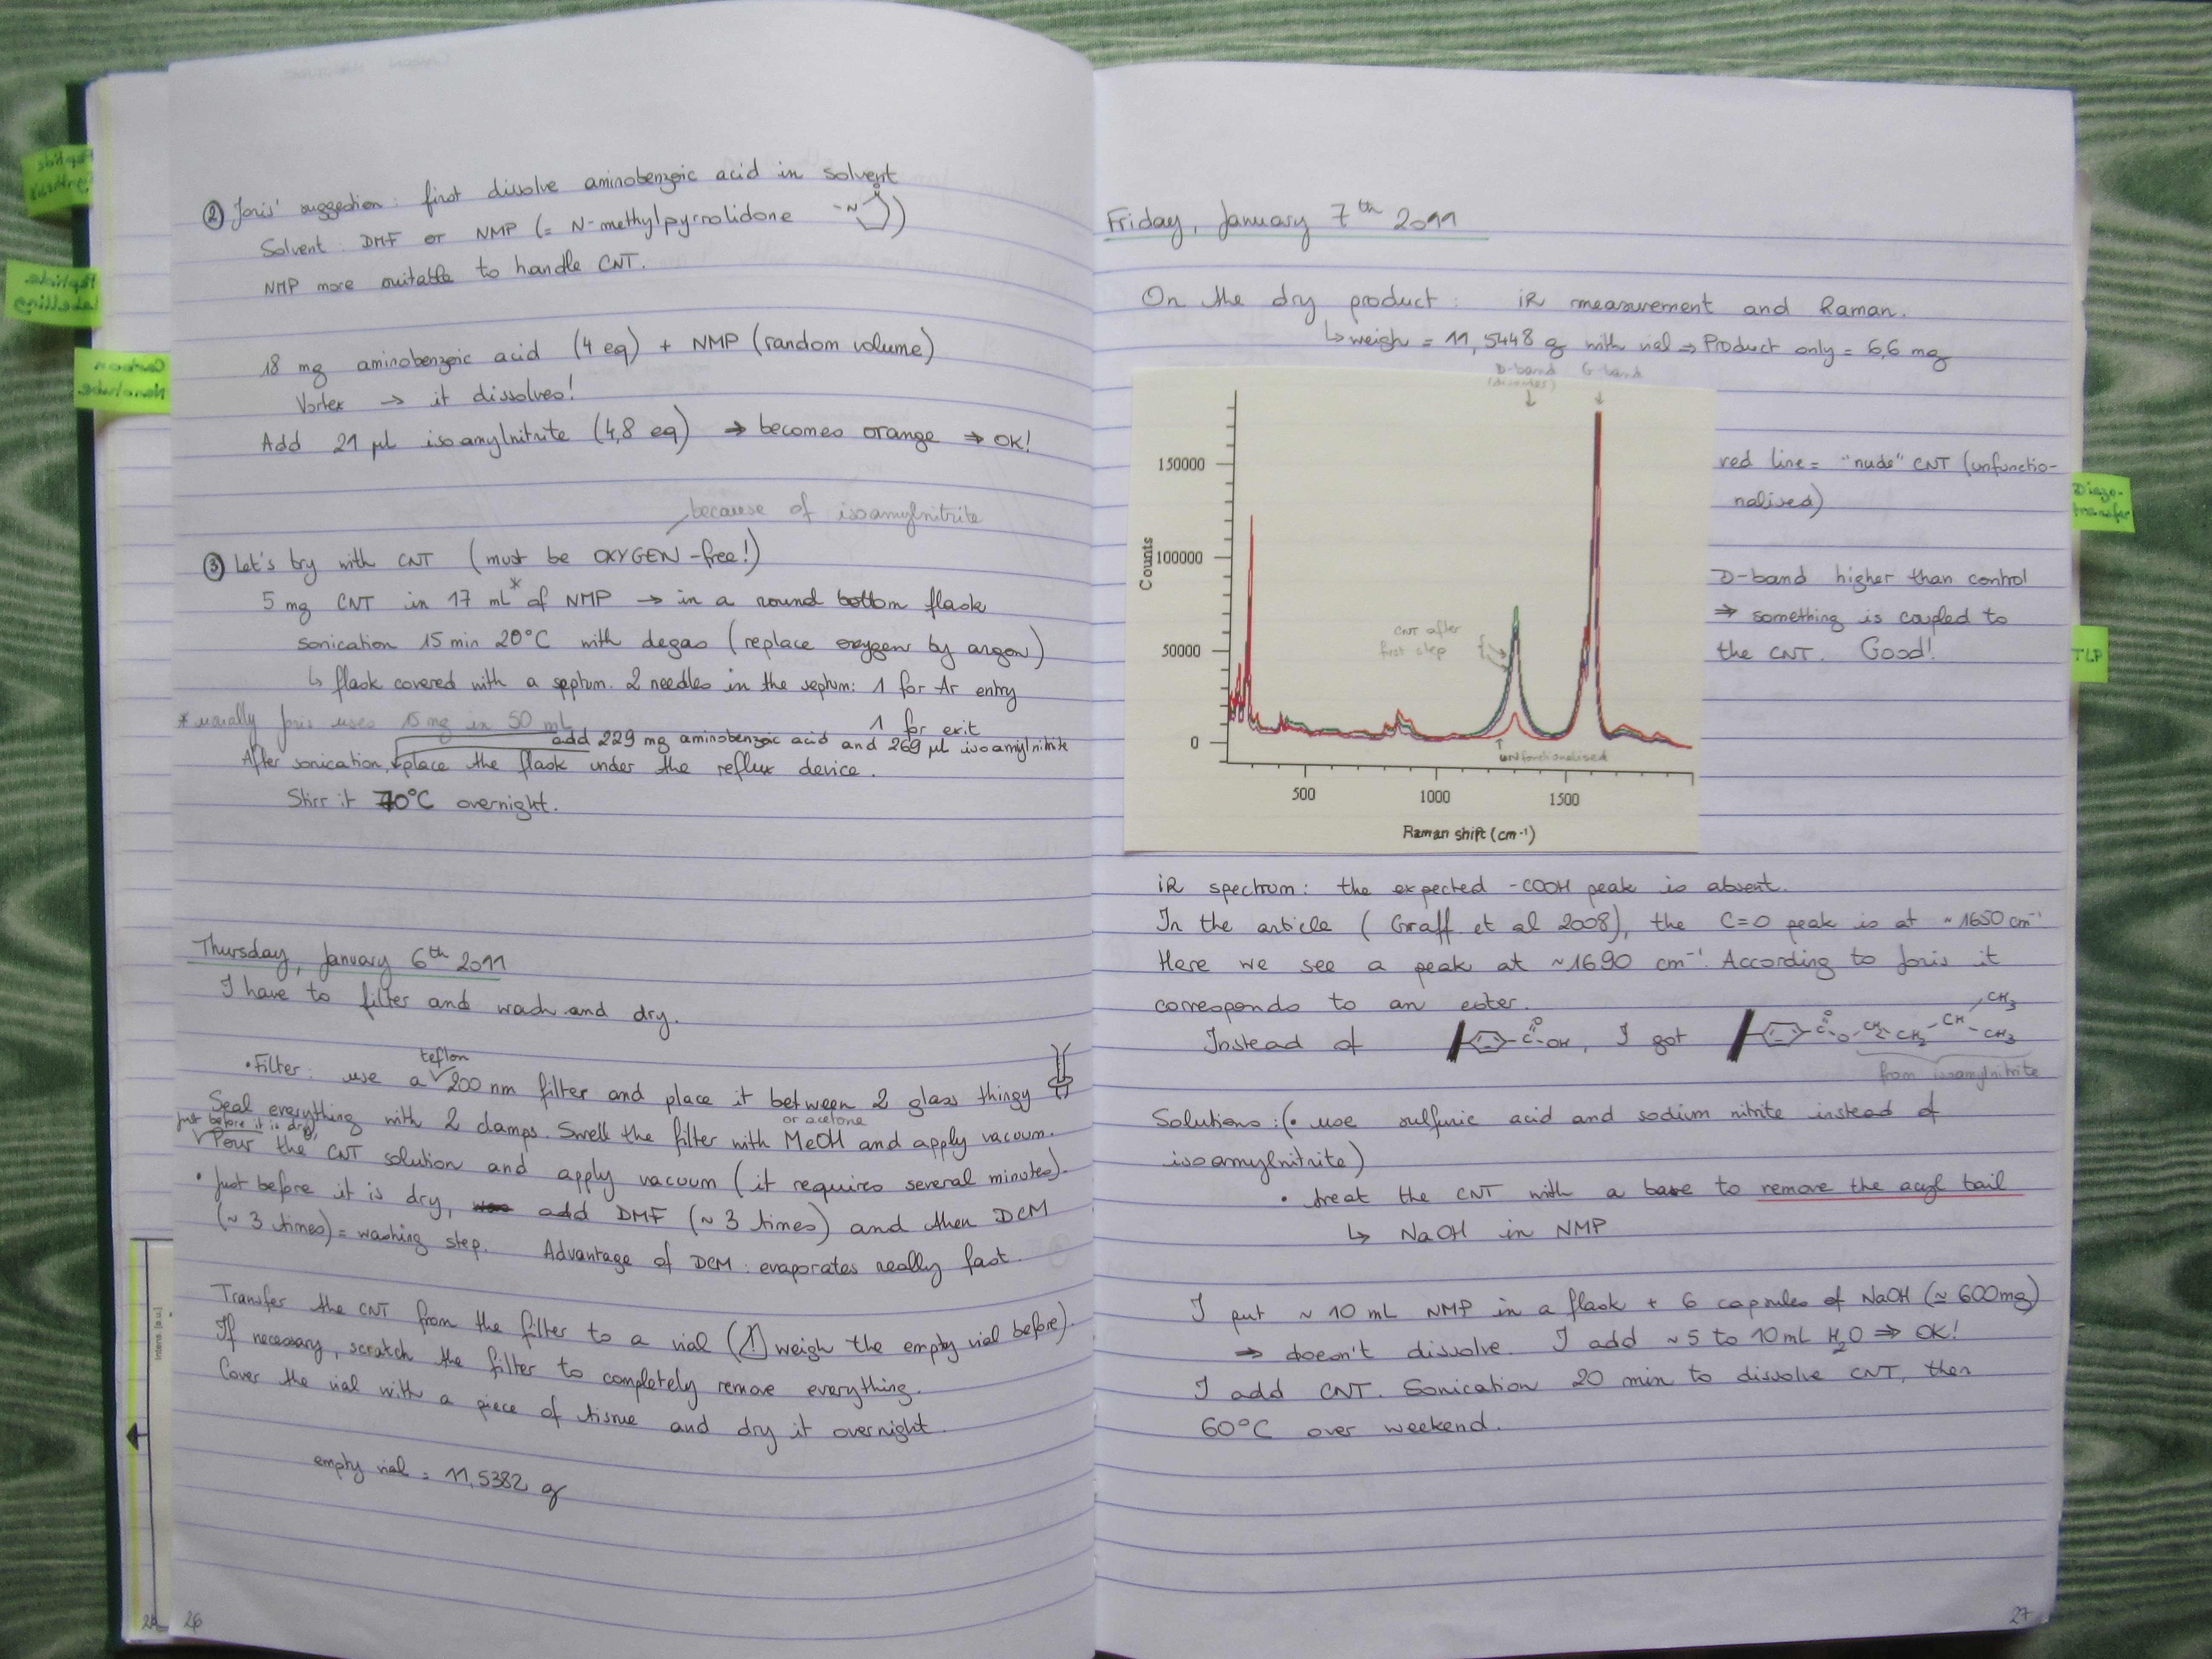 ② Joris' suggestion: first dissolve aminobenzoic acid in solvent
Solvent: DMF or NMP (= N-methylpyrrolidone -N O)
NMP more suitable to handle CNT.
18 mg aminobenzoic acid (4 eq) + NMP (random volume)
Vortex → it dissolves!
Add 21 µl isoamylnitrite (4,8 eq) → becomes orange ⇒ OK!
because of isoamylnitrite
③ Let's try with CNT (must be OXYGEN-free!)
5 mg CNT in 17 mL* of NMP → in a round bottom flask
sonication 15 min 20°C with degas (replace oxygen by argon)
↳ flask covered with a septum. 2 needles in the septum: 1 for Ar entry
1 for exit
* usually Joris uses 15 mg in 50 mL
add 229 mg aminobenzoic acid and 269 µl isoamylnitrite
After sonication, place the flask under the reflux device.
Stirr it 70°C overnight.
Thursday, January 6th 2011
I have to filter and wash and dry.
teflon
• Filter: use a 200 nm filter and place it between 2 glass thingy
Seal everything with 2 clamps. Swell the filter with MeOH and apply vacuum.
or acetone
just before it is dry,
Pour the CNT solution and apply vacuum (it requires several minutes).
• Just before it is dry, add DMF (~ 3 times) and then DCM
(~ 3 times) = washing step. Advantage of DCM: evaporates really fast.
Transfer the CNT from the filter to a vial (! weigh the empty vial before).
If necessary, scratch the filter to completely remove everything.
Cover the vial with a piece of tissue and dry it overnight.
empty vial = 11,5382 g
26
Friday, January 7th 2011
On the dry product: iR measurement and Raman.
↳ weigh = 11,5448 g with vial ⇒ Product only = 6,6 mg
D-band G-band
150000
100000
50000
0
Counts
500 1000 1500
Raman shift (cm-1)
CNT after
first step
unfunctionalised
red line = "nude" CNT (unfunctio-
nalised)
D-band higher than control
⇒ something is coupled to
the CNT. Good!
iR spectrum: the expected -COOH peak is absent.
In the article (Graff et al 2008), the C=O peak is at ~1650 cm-1
Here we see a peak at ~1690 cm-1. According to Joris it
corresponds to an ester.
Instead of C O OH, I got C O O CH2 CH2 CH CH3 CH3
from isoamylnitrite
Solutions: (• use sulfuric acid and sodium nitrite instead of
isoamylnitrite)
• treat the CNT with a base to remove the acyl tail
↳ NaOH in NMP
I put ~ 10 mL NMP in a flask + 6 capsules of NaOH (≃ 600mg)
⇒ doesn't dissolve. I add ~5 to 10 mL H2O ⇒ OK!
I add CNT. Sonication 20 min to dissolve CNT, then
60°C over weekend.
27
Diazo-
transfer
TLP
Peptide
Labelling
Carbon
Nanotube
Intens. [a.u.]